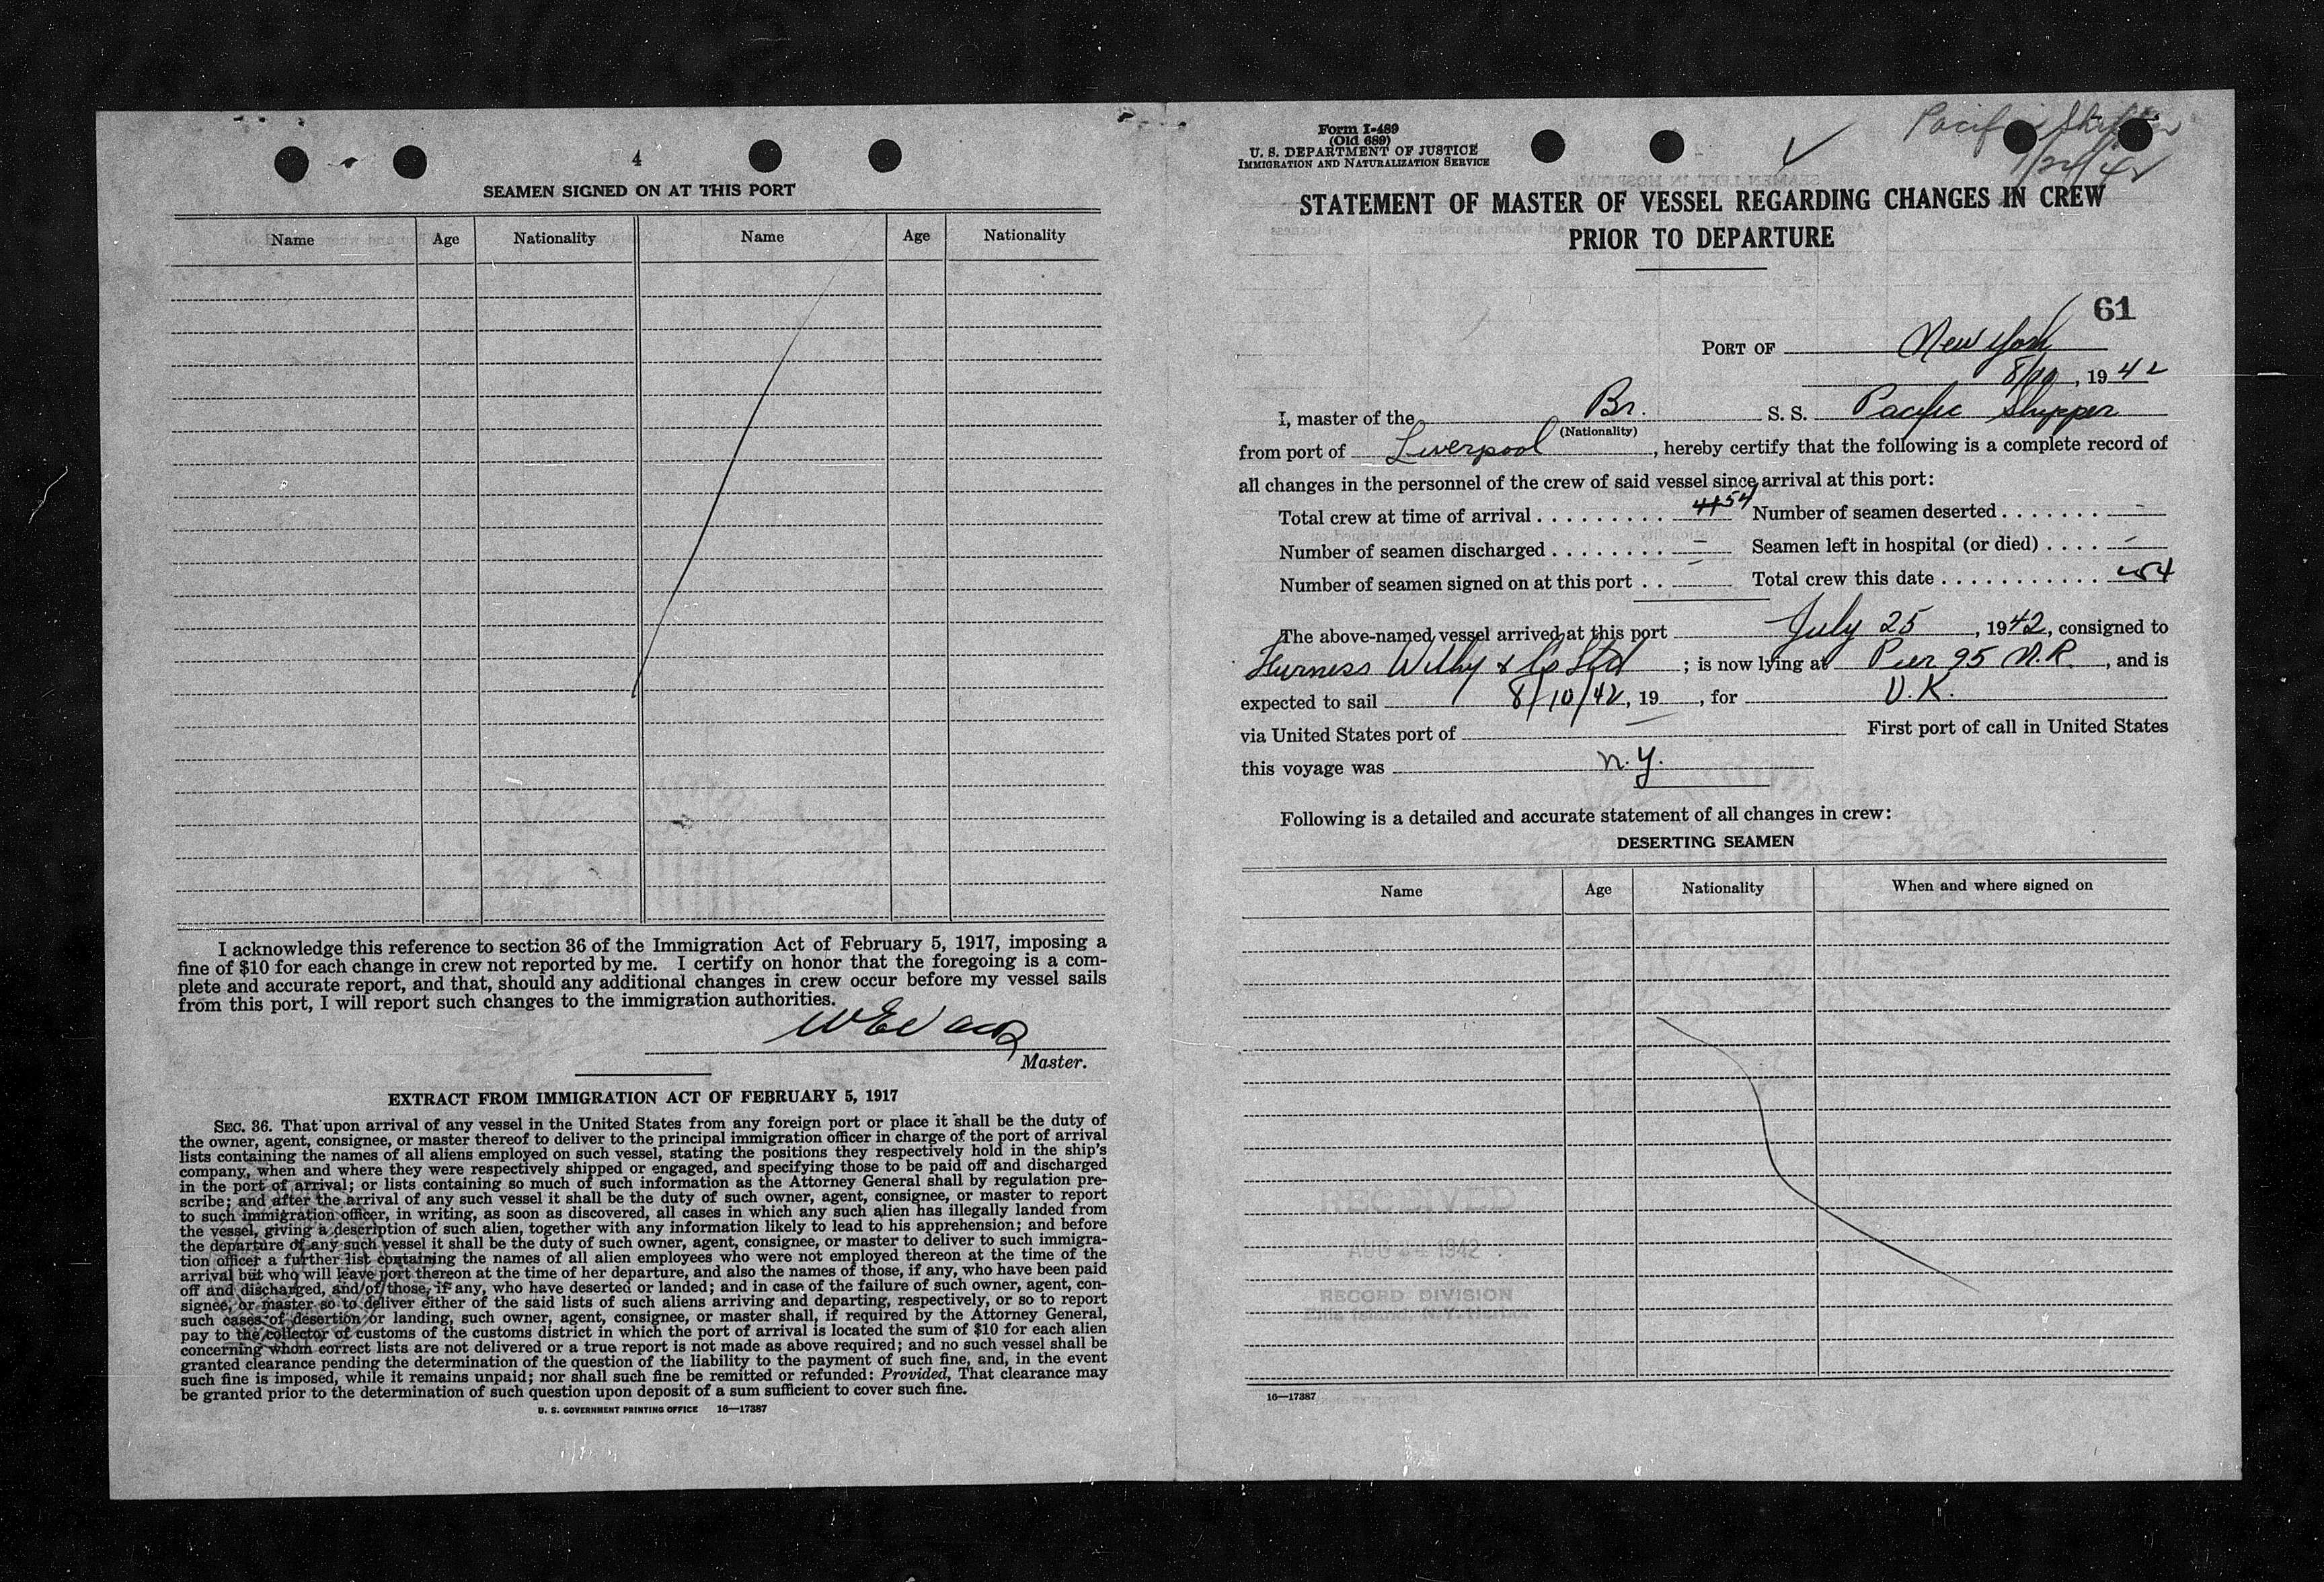 4
SEAMEN SIGNED ON AT THIS PORT
Name Age Nationality Name Age Nationality
I acknowledge this reference to section 36 of the Immigration Act of February 5, 1917, imposing a
fine of $10 for each change in crew not reported by me. I certify on honor that the foregoing is a com-
plete and accurate report, and that, should any additional changes in crew occur before my vessel sails
from this port, I will report such changes to the immigration authorities.
W Evans
Master.
EXTRACT FROM IMMIGRATION ACT OF FEBRUARY 5, 1917
SEC. 36. That upon arrival of any vessel in the United States from any foreign port or place it shall be the duty of
the owner, agent, consignee, or master thereof to deliver to the principal immigration officer in charge of the port of arrival
lists containing the names of all aliens employed on such vessel, stating the positions they respectively hold in the ship's
company, when and where they were respectively shipped or engaged, and specifying those to be paid off and discharged
in the port of arrival; or lists containing so much of such information as the Attorney General shall by regulation pre-
scribe; and after the arrival of any such vessel it shall be the duty of such owner, agent, consignee, or master to report
to such immigration officer, in writing, as soon as discovered, all cases in which any such alien has illegally landed from
the vessel, giving a description of such alien, together with any information likely to lead to his apprehension; and before
the departure of any such vessel it shall be the duty of such owner, agent, consignee, or master to deliver to such immigra-
tion officer a further list containing the names of all alien employees who were not employed thereon at the time of the
arrival but who will leave port thereon at the time of her departure, and also the names of those, if any, who have been paid
off and discharged, and of those, if any, who have deserted or landed; and in case of the failure of such owner, agent, con-
signee, or master so to deliver either of the said lists of such aliens arriving and departing, respectively, or so to report
such cases of desertion or landing, such owner, agent, consignee, or master shall, if required by the Attorney General,
pay to the collector of customs of the customs district in which the port of arrival is located the sum of $10 for each alien
concerning whom correct lists are not delivered or a true report is not made as above required; and no such vessel shall be
granted clearance pending the determination of the question of the liability to the payment of such fine, and, in the event
such fine is imposed, while it remains unpaid; nor shall such fine be remitted or refunded: Provided, That clearance may
be granted prior to the determination of such question upon deposit of a sum sufficient to cover such fine.
U. S. GOVERNMENT PRINTING OFFICE 16—17387
Form I-489
(Old 689)
U. S. DEPARTMENT OF JUSTICE
IMMIGRATION AND NATURALIZATION SERVICE
Pacific Shipper
STATEMENT OF MASTER OF VESSEL REGARDING CHANGES IN CREW
PRIOR TO DEPARTURE
61
PORT OF New York
8/10, 1942
I, master of the Br. S. S. Pacific Shipper
(Nationality)
from port of Liverpool, hereby certify that the following is a complete record of
all changes in the personnel of the crew of said vessel since arrival at this port:
Total crew at time of arrival . . . . . . . . . 54 Number of seamen deserted . . . . . . . -
Number of seamen discharged . . . . . . . . - Seamen left in hospital (or died) . . . . -
Number of seamen signed on at this port . . - Total crew this date . . . . . . . . . . . 54
The above-named vessel arrived at this port July 25, 1942, consigned to
Furness Withy & Co Ltd; is now lying at Pier 95 N.R., and is
expected to sail 8/10/42, 19 , for U.K.
via United States port of — First port of call in United States
this voyage was N.Y.
Following is a detailed and accurate statement of all changes in crew:
DESERTING SEAMEN
Name Age Nationality When and where signed on
RECEIVED
AUG 1942
RECORD DIVISION
16—17387